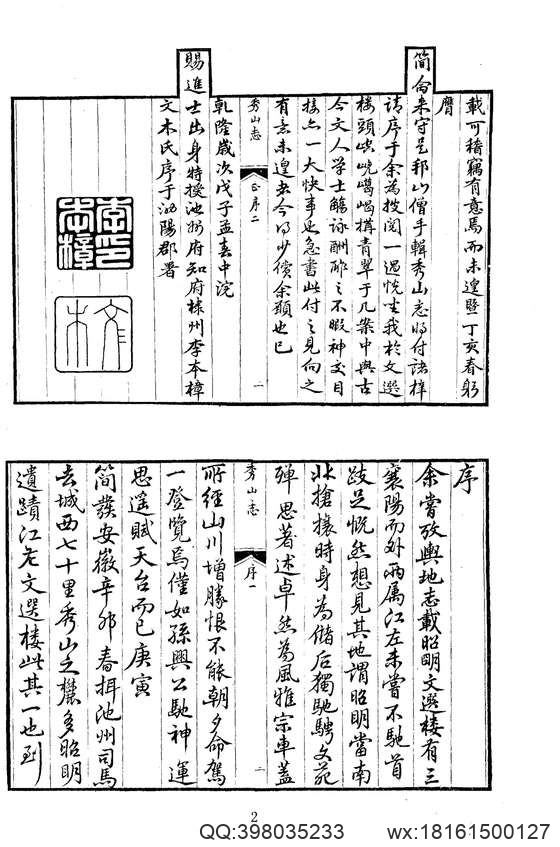 載可稽竊有意焉而未遑暨丁亥春躬
膺
簡命來守是邦山僧手輯秀山志將付諸梓
請序于余為披閱一過恍坐我於文選
樓頭峡崆巀嵑搆青翠于几案中與古
今文人学士觴詠酬酢之不暇神交目
接亦一大快事也急書此付之見向之
有意未遑者今乃少償余願也已
秀山志
李序二
一
乾隆歲次戊子孟春中浣
賜進士出身特授池州府知府棣州李本樟
文木氏序于池陽郡署
李印本樟
文木
序
余嘗攷輿地志載昭明文選樓有三
襄陽而外兩属江左未嘗不馳首
跂足慨然想見其地謂昭明當南
北搶攘時身為儲后獨馳騁文苑
殫思著述卓然為風雅宗車蓋
秀山志
序一
二
所經山川增勝恨不能朝夕命駕
一登覽焉僅如孫興公馳神運
思遥賦天台而已庚寅
簡發安徽辛卯春捐池州司馬
去城西七十里秀山之麓多昭明
遺蹟江左文選樓此其一也到
2
QQ:398035233
wx:18161500127